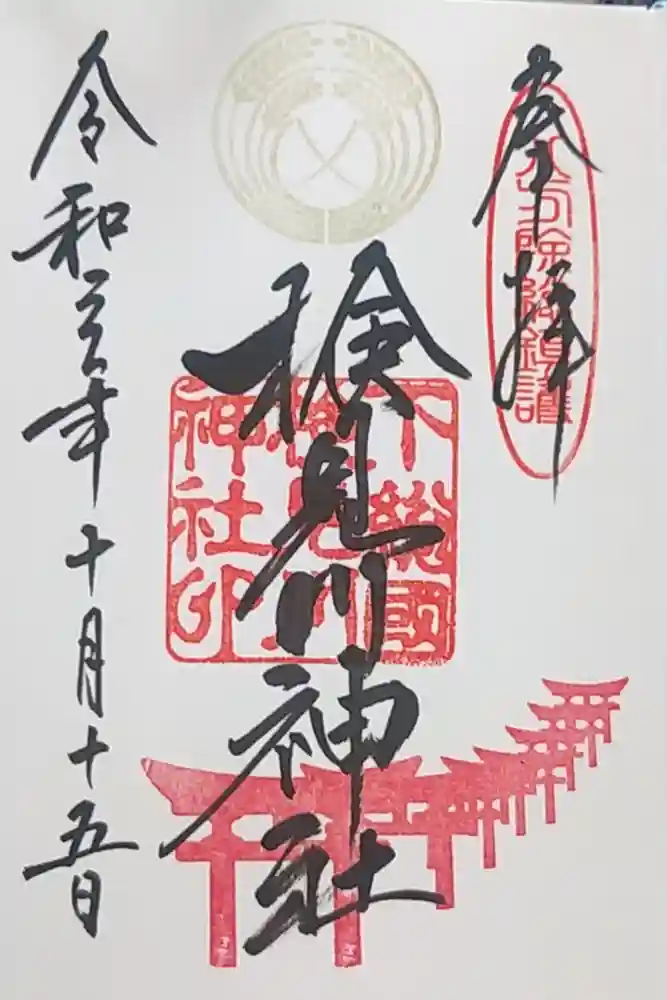 奉拝
八方除総鎮護
検見川神社
下総國
検見川
神社印
令和三年十月十五日